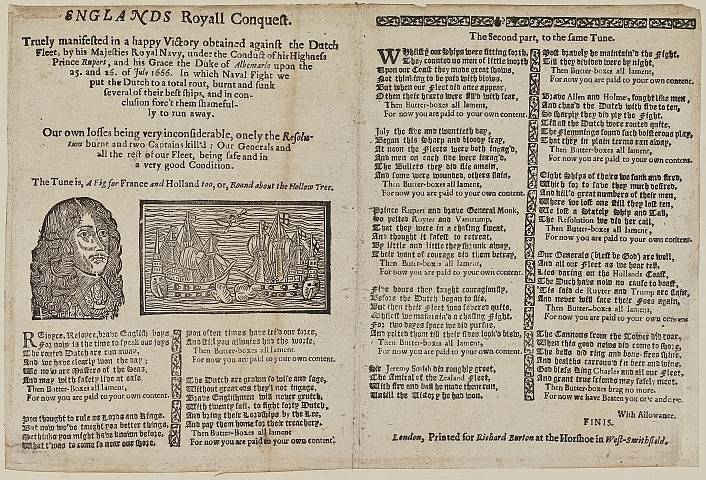 ENGLANDS Royall Conquest.
Truely manifested in a happy Victory obtained against the Dutch
Fleet, by his Majesties Royal Navy, under the Conduct of his Highness
Prince Rupert, and his Grace the Duke of Albemarle upon the
25. and 26. of July 1666. In which Naval Fight we
put the Dutch to a total rout, burnt and sunk
several of their best ships, and in con-
clusion forc't them shameful-
ly to run away.
Our own losses being very inconsiderable, onely the Resolu-
tion burnt and two Captains kill'd; Our Generals and
all the rest of our Fleet, being safe and in
a very good Condition.
The Tune is, A Fig for France and Holland too, or, Round about the Hollow Tree.
REjoyce, Rejoyce, brave English boys
For now is the time to speak our joys
The routed Dutch are run away,
And we have clearly won the day;
We now are Masters of the Seas,
And may with safety live at ease.
Then Butter-Boxes all lament,
For now you are paid to your own content.
You thought to rule as Lords and Kings.
But now we've taught you better things,
Methinks you might have known before,
What t'was to come so near our shore,
You often times have tri'd our force,
And still you allwaies had the worse.
Then Butter-boxes all lament.
For now you are paid to your own content.
The Dutch are grown so wise and sage,
Without great ods they'l not ingage,
Brave Englishmen will never grutch,
With twenty sail, to fight forty Dutch,
And bring their Lordships by the Lee,
And pay them home for their treachery.
Then Butter-Boxes all lament
For now you are paid to your own content.
The Second part, to the same Tune.
WHilst our Ships were fitting forth,
They counted us men of little worth
Upon our Coast they made great shows,
Not thinking to be paid with blows.
But when our Fleet did once appear,
O then their hearts were fill'd with fear,
Then Butter-boxes all lament,
For now you are paid to your own content.
July the five and twentieth day,
Began this sharp and bloody fray,
At noon the Fleets were both ingag'd,
And men on each side were inrag'd,
The Bullets they did flie amain,
And some were wounded, others slain,
Then Butter-boxes all lament,
For now you are paid to your own content.
Prince Rupert and brave General Monk,
So pelted Ruyter and Vantrump,
That they were in a chafing sweat,
And thought it safest to retreat.
By little and little they shrunk away,
Their want of courage did them betray,
Then Butter-boxes all lament,
For now you are paid to your own content.
Five hours they fought couragiously,
Before the Dutch began to flie,
But then their Fleet was severed quite,
Whilst we maintain'd a chasing Fight.
For two dayes space we did pursue,
And pelted them till their sides look'd blew,
Then Butter-boxes all lament,
For now you are paid to your own content.
Sir Jeremy Smith did roughly greet,
The Admiral of the Zealand Fleet,
With fire and ball he made them run,
Untill the Victory he had won.
Most bravely he maintain'd the Fight,
Till they divided were by night,
Then Butter-boxes all lament,
For now you are paid to your own content.
Brave Allen and Holmes, fought like men,
And chas'd the Dutch with five to ten,
So sharply they did ply the Fight.
Till all the Dutch were routed quite,
The Flemmings found such boisterous play,
That they in plain terms ran away.
Then Butter-boxes all lament,
For now you are paid to your own content.
Eight Ships of theirs we sunk and fired,
Which for to save they much desired,
And kill'd great numbers of their men,
Where we lost one still they lost ten,
We lost a Stately Ship and Tall,
The Resolution we did her call,
Then Butter-boxes all lament,
For now you are paid to your own content.
Our Generals (blest be God) are well,
And all our Fleet as we hear tell,
Lies daring on the Hollands Coast,
The Dutch have now no cause to boast,
'Tis said de Ruyter and Trump are slain,
And never will face their Foes again,
Then Butter-boxes all lament,
For now you are paid to your own content
The Cannons from the Tower did roar,
When this good news did come to shore,
The bells did ring and bone-fires shine,
And healths carrous'd in beer and wine,
God bless King Charles and all our Fleet,
And grant true friends may safely meet.
Then Butter-boxes brag no more.
For now we have Beaten you o're and o're.
With Allowance.
FINIS.
London, Printed for Richard Burton at the Horshoe in West-Smithfield.